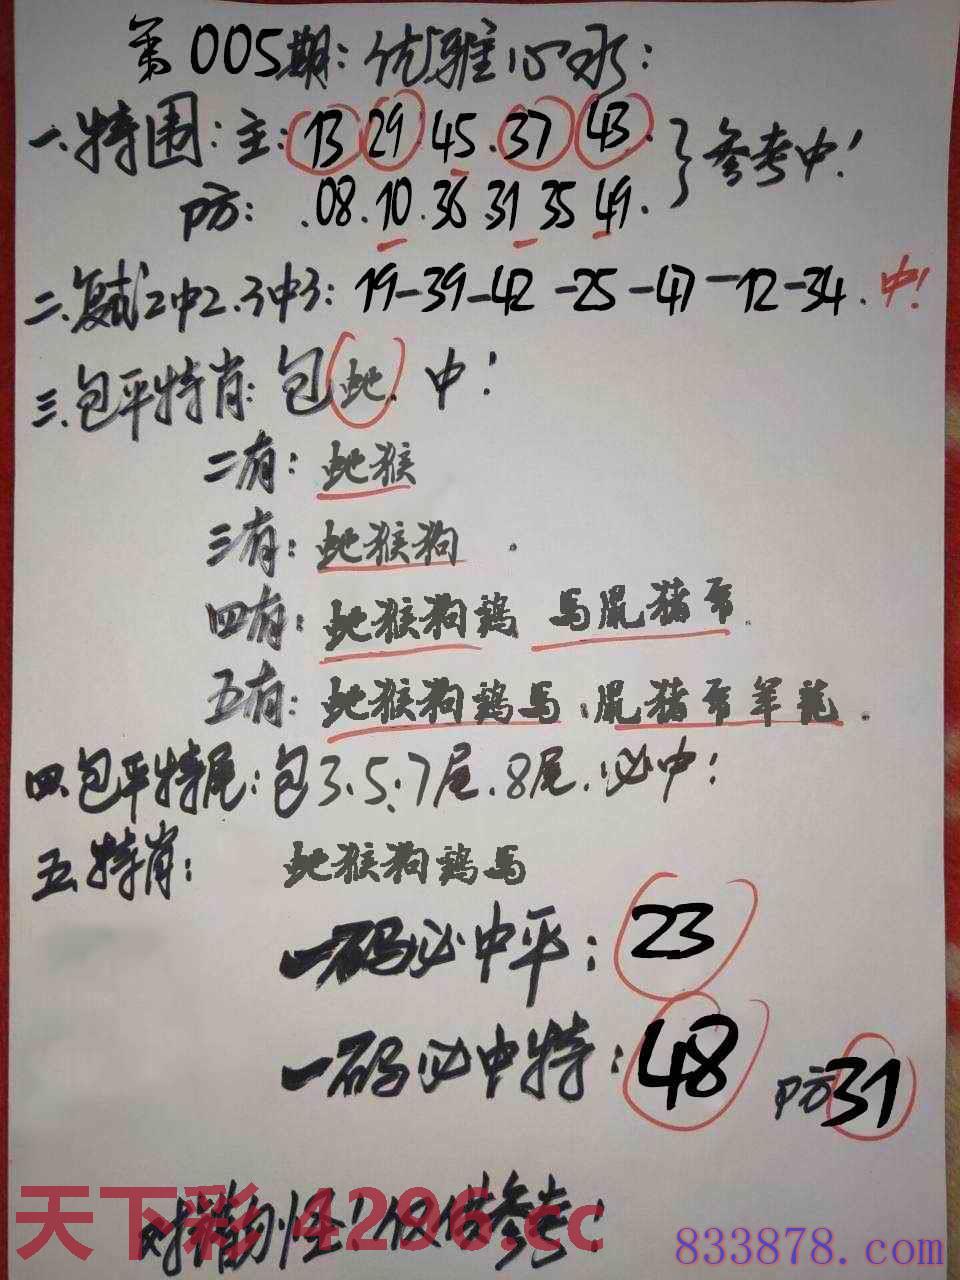 第005期:优雅心水:
一.特围:主:13 29 45.37 43.}参考中!
防:.08.10.36 31 35 49.
二.复式2中2.3中3:19-39-42-25-47-12-34.中!
三.包平特肖:包蛇.中!
二有:蛇猴
三有:蛇猴狗.
四有:蛇猴狗鸡 马鼠猪
五有:蛇猴狗鸡马.鼠猪 羊龙.
四.包平特尾:包3.5.7尾.8尾.必中!
五.特肖:蛇猴狗鸡马
一码必中平:23
一码必中特:48 防31
对错勿怪!仅供参考!
天下彩 4296.cc
833878.com